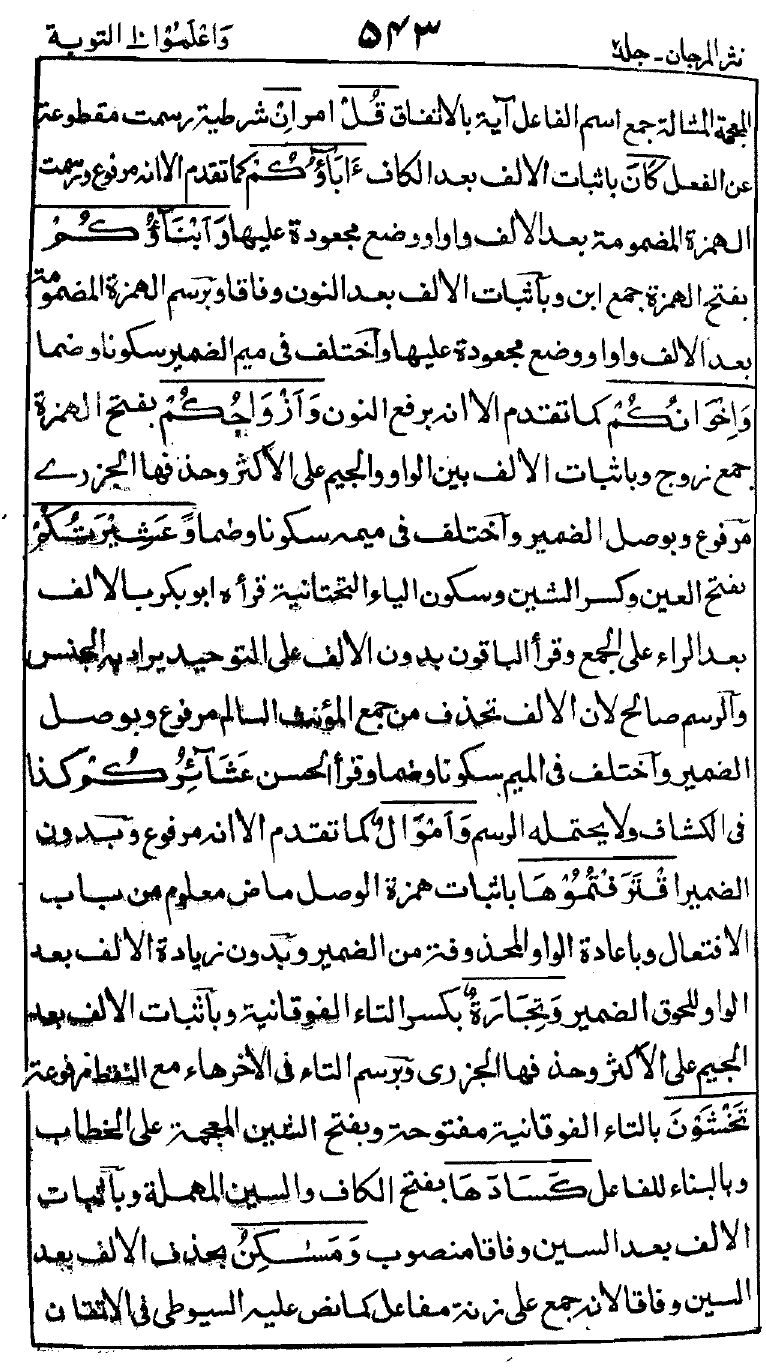 نثر المرجان - جلد ٢ ٥٤٣ وَاعْلَمُوْا ١٠ التوبة
المعجمة المشالة جمع اسم الفاعل آية بالاتفاق قُلْ امر اِنْ شرطية رسمت مقطوعة
عن الفعل كَانَ باثبات الالف بعد الكاف ءَابَآؤُكُمْ كما تقدم الا انه مرفوع ورسمت
الهمزة المضمومة بعد الالف واوا ووضع مجعودة عليها وَاَبْنَآؤُكُمْ
بفتح الهمزة جمع ابن وباثبات الالف بعد النون وفاقا وبرسم الهمزة المضمومة
بعد الالف واوا ووضع مجعودة عليها واختلف فى ميم الضمير سكونا وضما
وَاِخْوَانُكُمْ كما تقدم الا انه برفع النون وَاَزْوَاجُكُمْ بفتح الهمزة
جمع زوج وباثبات الالف بين الواو والجيم على الاكثر وحذفها الجزرے
مرفوع وبوصل الضمير واختلف فى ميمه سكونا وضما وَعَشِيْرَتُكُمْ
بفتح العين وكسر الشين وسكون الياء التحتانية قرأه ابو بكر بالالف
بعد الراء على الجمع وقرأ الباقون بدون الالف على التوحيد يراد به الجنس
والرسم صالح لان الالف تحذف من جمع المؤنث السالم مرفوع وبوصل
الضمير واختلف فى الميم سكونا وضما وقرأ الحسن عَشَآئِرُكُمْ كذا
فى الكشاف ولا يحتمله الرسم وَاَمْوَالٌ كما تقدم الا انه مرفوع وبدون
الضمير اقْتَرَفْتُمُوْهَا باثبات همزة الوصل ماض معلوم من باب
الافتعال وباعادة الواو المحذوفة من الضمير وبدون زيادة الالف بعد
الواو للحوق الضمير وَتِجَارَةٌ بكسر التاء الفوقانية وباثبات الالف بعد
الجيم على الاكثر وحذفها الجزرى وبرسم التاء فى الآخر هاء مع النقط مرفوعة
تَخْشَوْنَ بالتاء الفوقانية مفتوحة وبفتح الشين المعجمة على الخطاب
وبالبناء للفاعل كَسَادَهَا بفتح الكاف والسين المهملة وباثبات
الالف بعد السين وفاقا منصوب وَمَسٰكِنُ بحذف الالف بعد
السين وفاقا لانه جمع على زنة مفاعل كما نص عليه السيوطى فى الاتقان